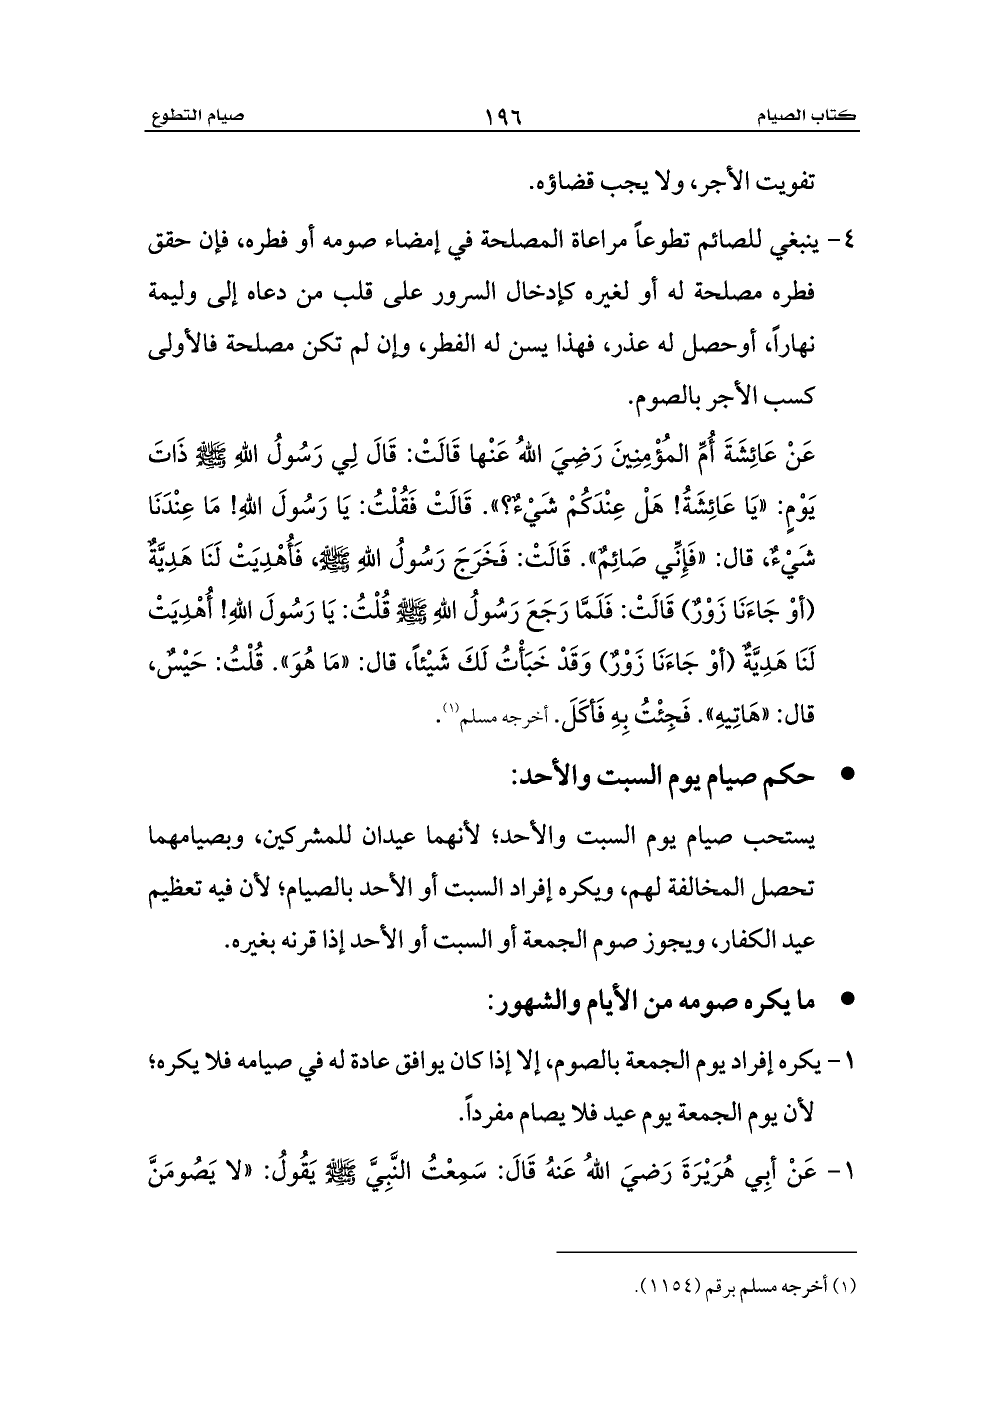 كتاب الصيام ١٩٦ صيام التطوع
تفويت الأجر، ولا يجب قضاؤه.
٤- ينبغي للصائم تطوعاً مراعاة المصلحة في إمضاء صومه أو فطره، فإن حقق
فطره مصلحة له أو لغيره كإدخال السرور على قلب من دعاه إلى وليمة
نهاراً، أوحصل له عذر، فهذا يسن له الفطر، وإن لم تكن مصلحة فالأولى
كسب الأجر بالصوم.
عَنْ عَائِشَةَ أُمِّ المُؤْمِنِينَ رَضِيَ اللهُ عَنْها قَالَتْ: قَالَ لِي رَسُولُ اللهِ ﷺ ذَاتَ
يَوْمٍ: «يَا عَائِشَةُ! هَلْ عِنْدَكُمْ شَيْءٌ؟». قَالَتْ فَقُلْتُ: يَا رَسُولَ اللهِ! مَا عِنْدَنَا
شَيْءٌ، قال: «فَإِنِّي صَائِمٌ». قَالَتْ: فَخَرَجَ رَسُولُ اللهِ ﷺ، فَأُهْدِيَتْ لَنَا هَدِيَّةٌ
(أوْ جَاءَنَا زَوْرٌ) قَالَتْ: فَلَمَّا رَجَعَ رَسُولُ اللهِ ﷺ قُلْتُ: يَا رَسُولَ اللهِ! أُهْدِيَتْ
لَنَا هَدِيَّةٌ (أوْ جَاءَنَا زَوْرٌ) وَقَدْ خَبَأْتُ لَكَ شَيْئاً، قال: «مَا هُوَ». قُلْتُ: حَيْسٌ،
قال: «هَاتِيهِ». فَجِئْتُ بِهِ فَأكَلَ. أخرجه مسلم(١).
● حكم صيام يوم السبت والأحد:
يستحب صيام يوم السبت والأحد؛ لأنهما عيدان للمشركين، وبصيامهما
تحصل المخالفة لهم، ويكره إفراد السبت أو الأحد بالصيام؛ لأن فيه تعظيم
عيد الكفار، ويجوز صوم الجمعة أو السبت أو الأحد إذا قرنه بغيره.
● ما يكره صومه من الأيام والشهور:
١- يكره إفراد يوم الجمعة بالصوم، إلا إذا كان يوافق عادة له في صيامه فلا يكره؛
لأن يوم الجمعة يوم عيد فلا يصام مفرداً.
١- عَنْ أبِي هُرَيْرَةَ رَضيَ اللهُ عَنهُ قَالَ: سَمِعْتُ النَّبِيَّ ﷺ يَقُولُ: «لا يَصُومَنَّ
(١) أخرجه مسلم برقم (١١٥٤).